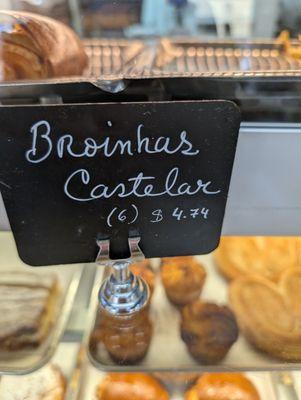 Broinhas
Castelar
(6) $ 4.74